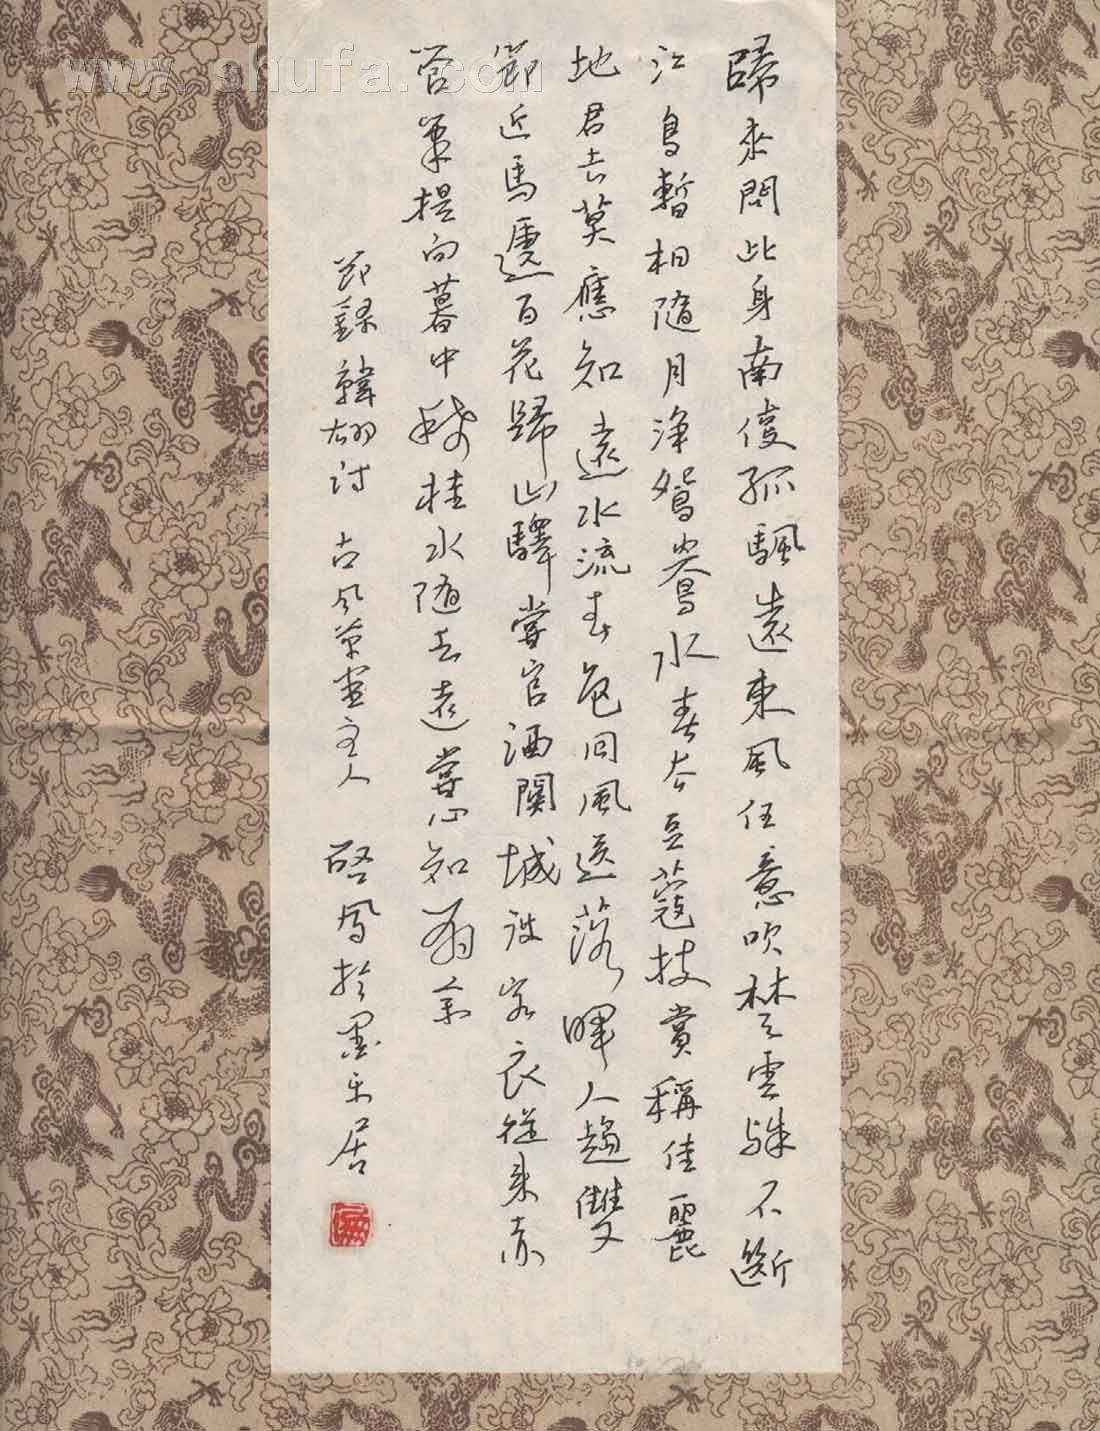 www.shufa.com
歸來問此身南復孤颿遠東風任意吹楚雲殊不斷
江鳥暫相隨月淨鴛鴦水春生豆蔻枝賞稱佳麗
地君去莫應知遠水流春色回風送落暉人趨雙
節近馬遞百花歸山驛嘗官酒關城設客衣從來赤
管筆提向暮中 桂水隨去遠嘗心知
節錄韓翃詩 古風草堂主人 啓鳳於墨樂居